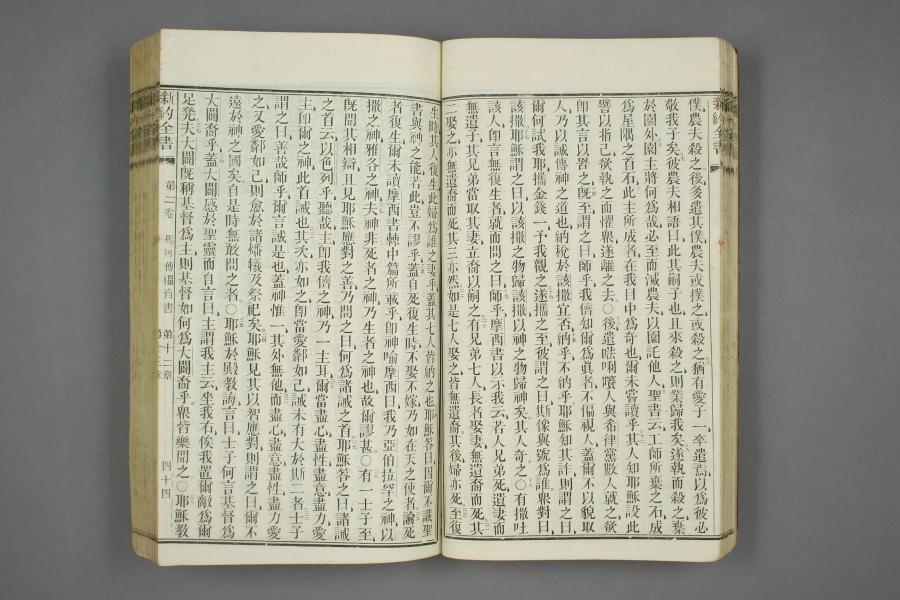 僕農夫殺之後多遣其僕農夫或撲之或殺之猶有愛子一卒遣焉以為彼必
敬我子矣彼農夫相語曰此其嗣子也且來殺之則業歸我矣遂執而殺之棄
於園外園主將何為哉必至而滅農夫以園託他人聖書云工師所棄之石成
為屋隅之首石此主所成者在我目中為奇也爾未嘗讀乎其人知耶穌設此
譬以指己欲執之而懼眾遂離之去○後遣𠵽唎㘔人與希律黨數人就之欲
即其言以罟之既至謂之曰師乎我儕知爾為真者不偏視人蓋爾不以貌取
人乃以誠傳神之道也納稅於該撒宜否納乎不納乎耶穌知其詐則謂之曰
爾何試我耶攜金錢一予我觀之遂攜之至彼謂之曰斯像與號為誰眾對曰
該撒耶穌謂之曰以該撒之物歸該撒以神之物歸神矣其人奇之○有撒吐
該人即言無復生者就而問之曰師乎摩西書以示我云若人兄弟死遺妻而
無遺子其兄弟當取其妻立裔以嗣之有兄弟七人長者娶妻無遺裔而死其
二娶之亦無遺裔而死其三亦然如是七人娶之皆無遺裔其後婦亦死至復
生時其人復生此婦為誰之妻乎蓋其七人皆納之也耶穌答曰因爾不識聖
書與神之能者此豈不謬乎蓋自死復生時不娶不嫁乃如在天之使者論死
者復生爾未讀摩西書棘中篇所載乎即神喻摩西曰我乃亞伯拉罕之神以
撒之神雅各之神夫神非死者之神乃生者之神也故爾謬甚○有一士子至
既聞其相辯且見耶穌應對之善乃問之曰何為諸誡之首耶穌答之曰諸誡
之首云以色列乎聽哉主即我儕之神乃一主耳爾當盡心盡性盡意盡力愛
主即爾之神此首誡也其次亦如之即當愛鄰如己誡未有大於斯二者士子
謂之曰善哉師乎爾言誠是也蓋神惟一其外無他而盡心盡意盡性盡力愛
之又愛鄰如己則愈於諸燔犧及祭祀矣耶穌見其以智應對則謂之曰爾不
遠於神之國矣自是時無敢問之者○耶穌於殿教誨言曰士子何言基督為
大闢裔乎蓋大闢感於聖靈而自言曰主謂我主云坐我右俟我置爾敵為爾
足凳夫大闢既稱基督為主則基督如何為大闢裔乎眾皆樂聞之○耶穌教
新約全書
第二卷
馬可傳福音書
第十二章
四十四